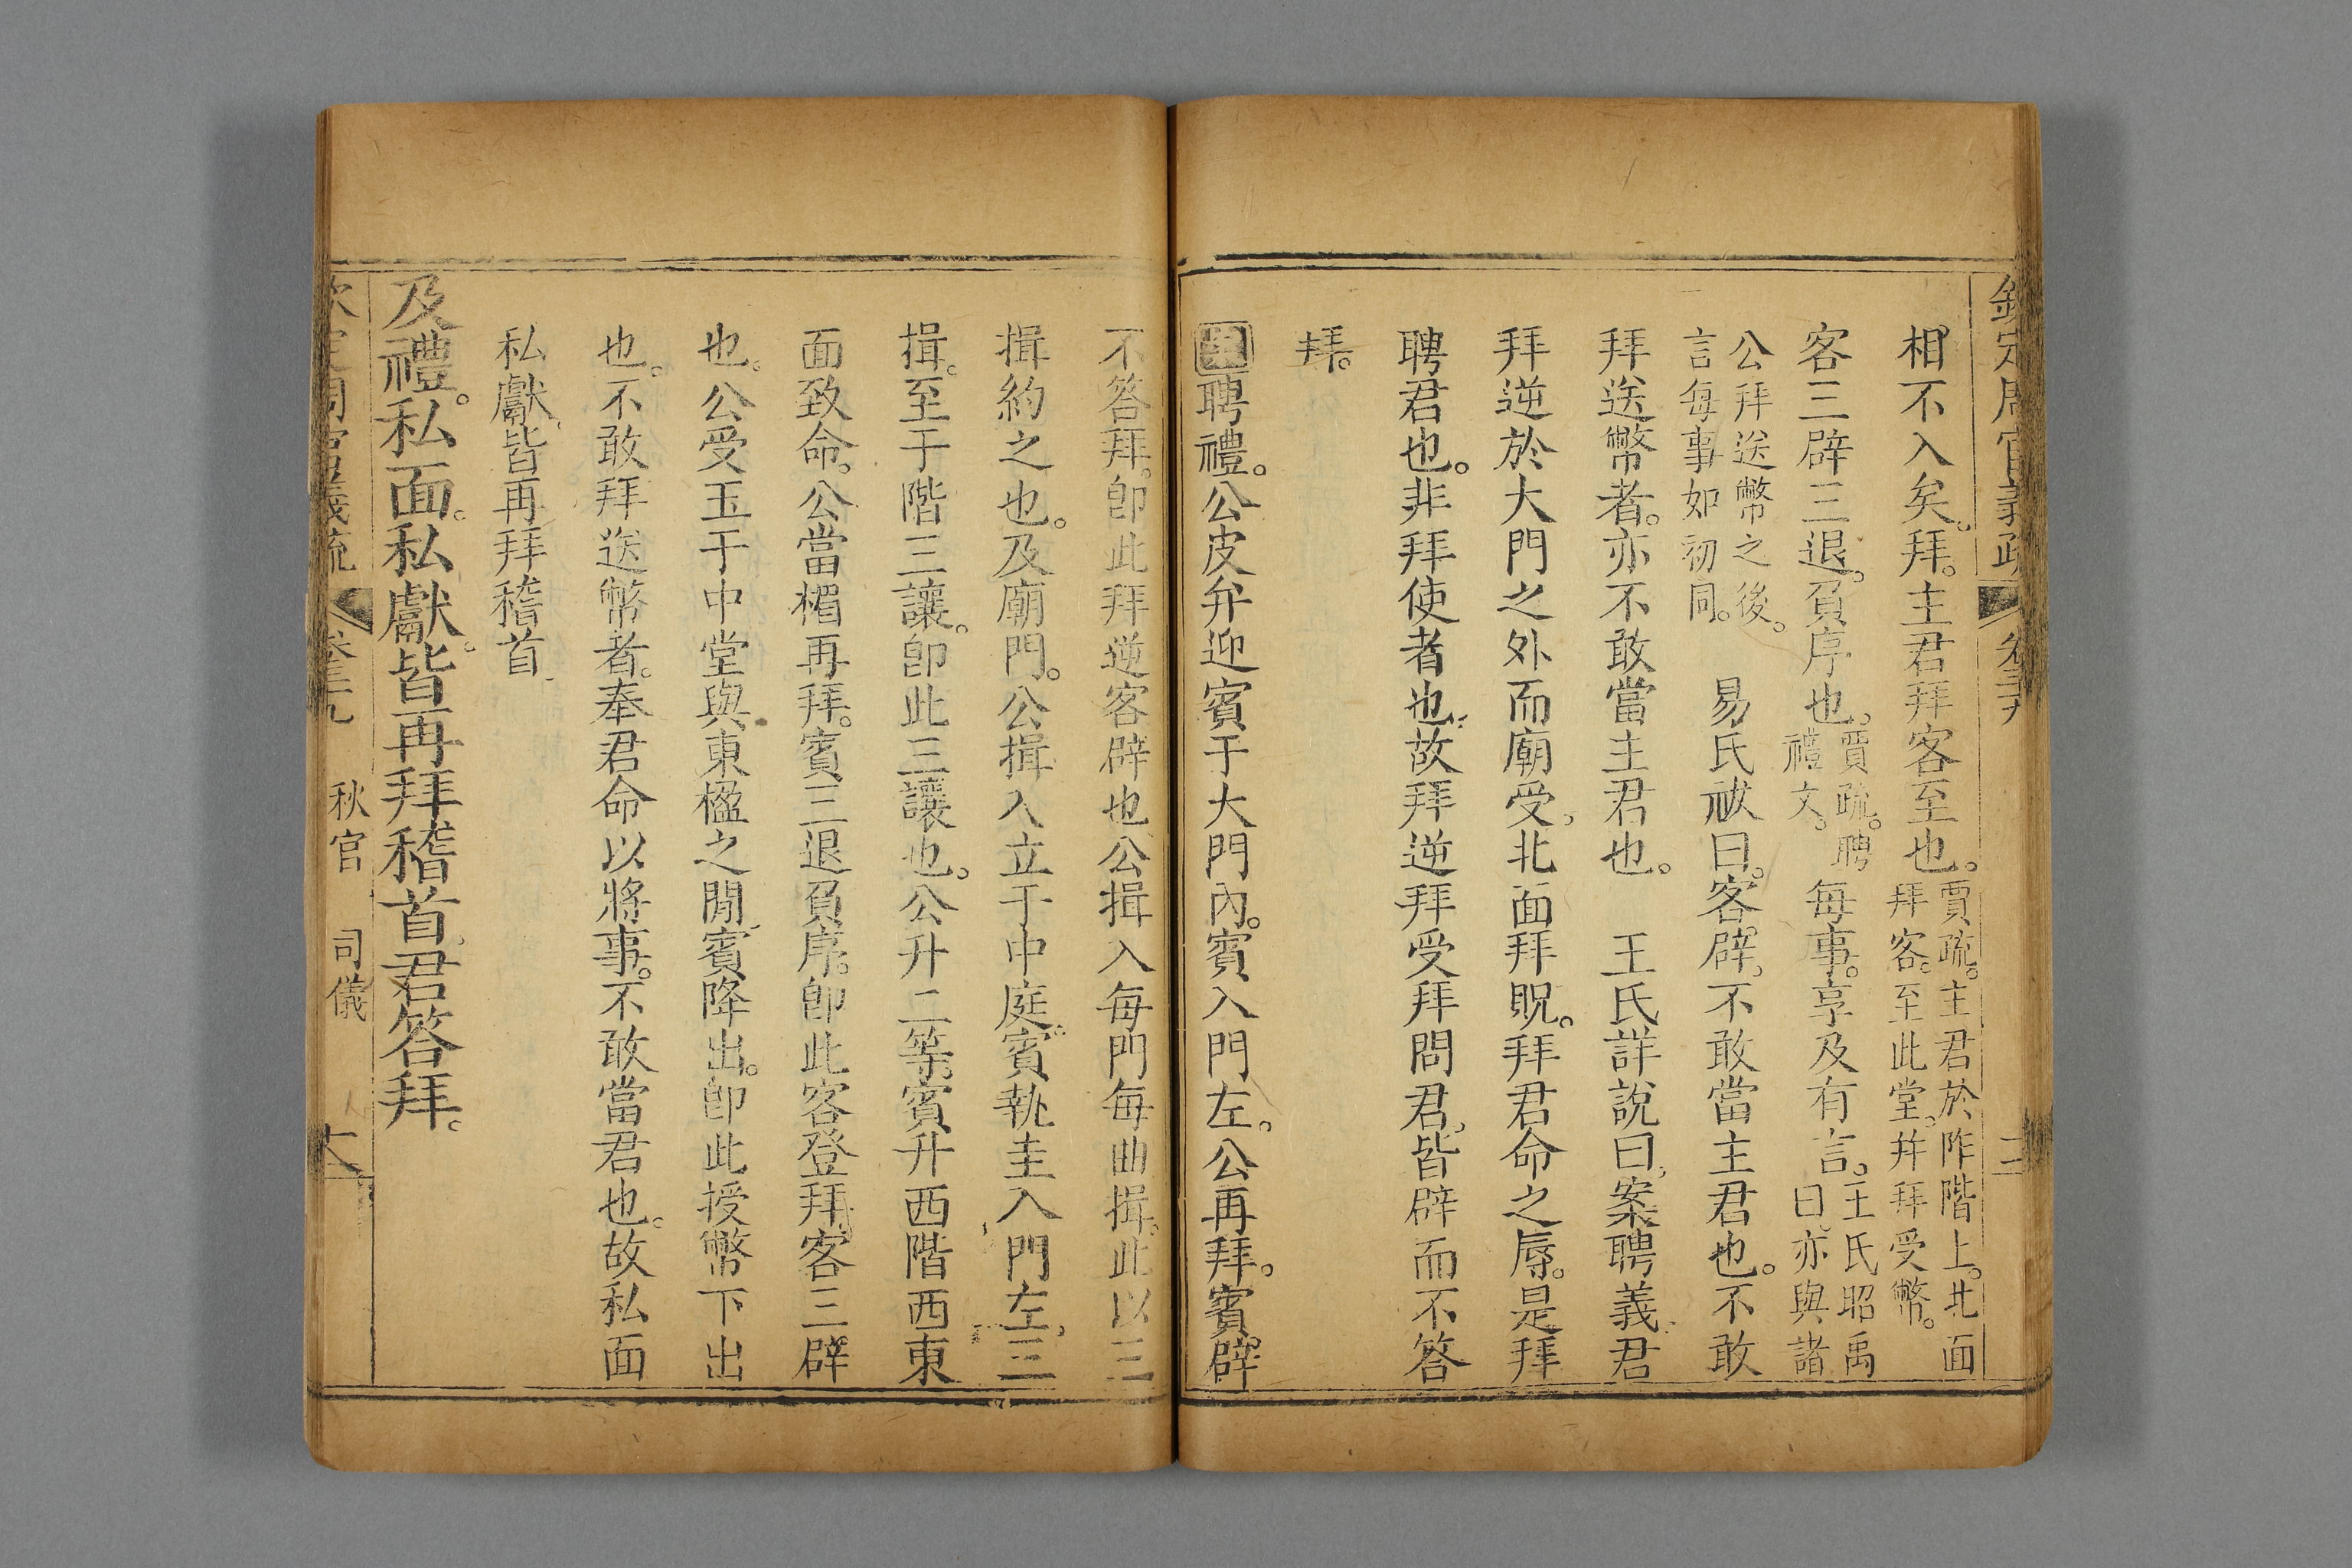 欽定周官義疏 卷三十九
相不入矣。拜。主君拜客至也。賈疏。主君於阼階上。北面拜客。至此堂。幷拜受幣。
客三辟三退。負序也。賈疏。聘禮文。每事。享及有言。王氏昭禹曰。亦與諸
公拜送幣之後。言每事如初同。 易氏祓曰。客辟。不敢當主君也。不敢
拜送幣者。亦不敢當主君也。 王氏詳說曰。案聘義。君
拜逆於大門之外而廟受。北面拜貺。拜君命之辱。是拜
聘君也。非拜使者也。故拜逆拜受拜問君。皆辟而不答
拜。
聘禮。公皮弁迎賓于大門內。賓入門左。公再拜。賓辟
不答拜。卽此拜逆客辟也。公揖入每門每曲揖。此以三
揖約之也。及廟門。公揖入立于中庭。賓執圭入門左。三
揖。至于階三讓。卽此三讓也。公升二等。賓升西階西東
面致命。公當楣再拜。賓三退負序。卽此客登拜。客三辟
也。公受玉于中堂與東楹之閒。賓降出。卽此授幣下出
也。不敢拜送幣者。奉君命以將事。不敢當君也。故私面
私獻。皆再拜稽首。
及禮。私面。私獻。皆再拜稽首。君答拜。
欽定周官義疏 卷三十九 秋官 司儀